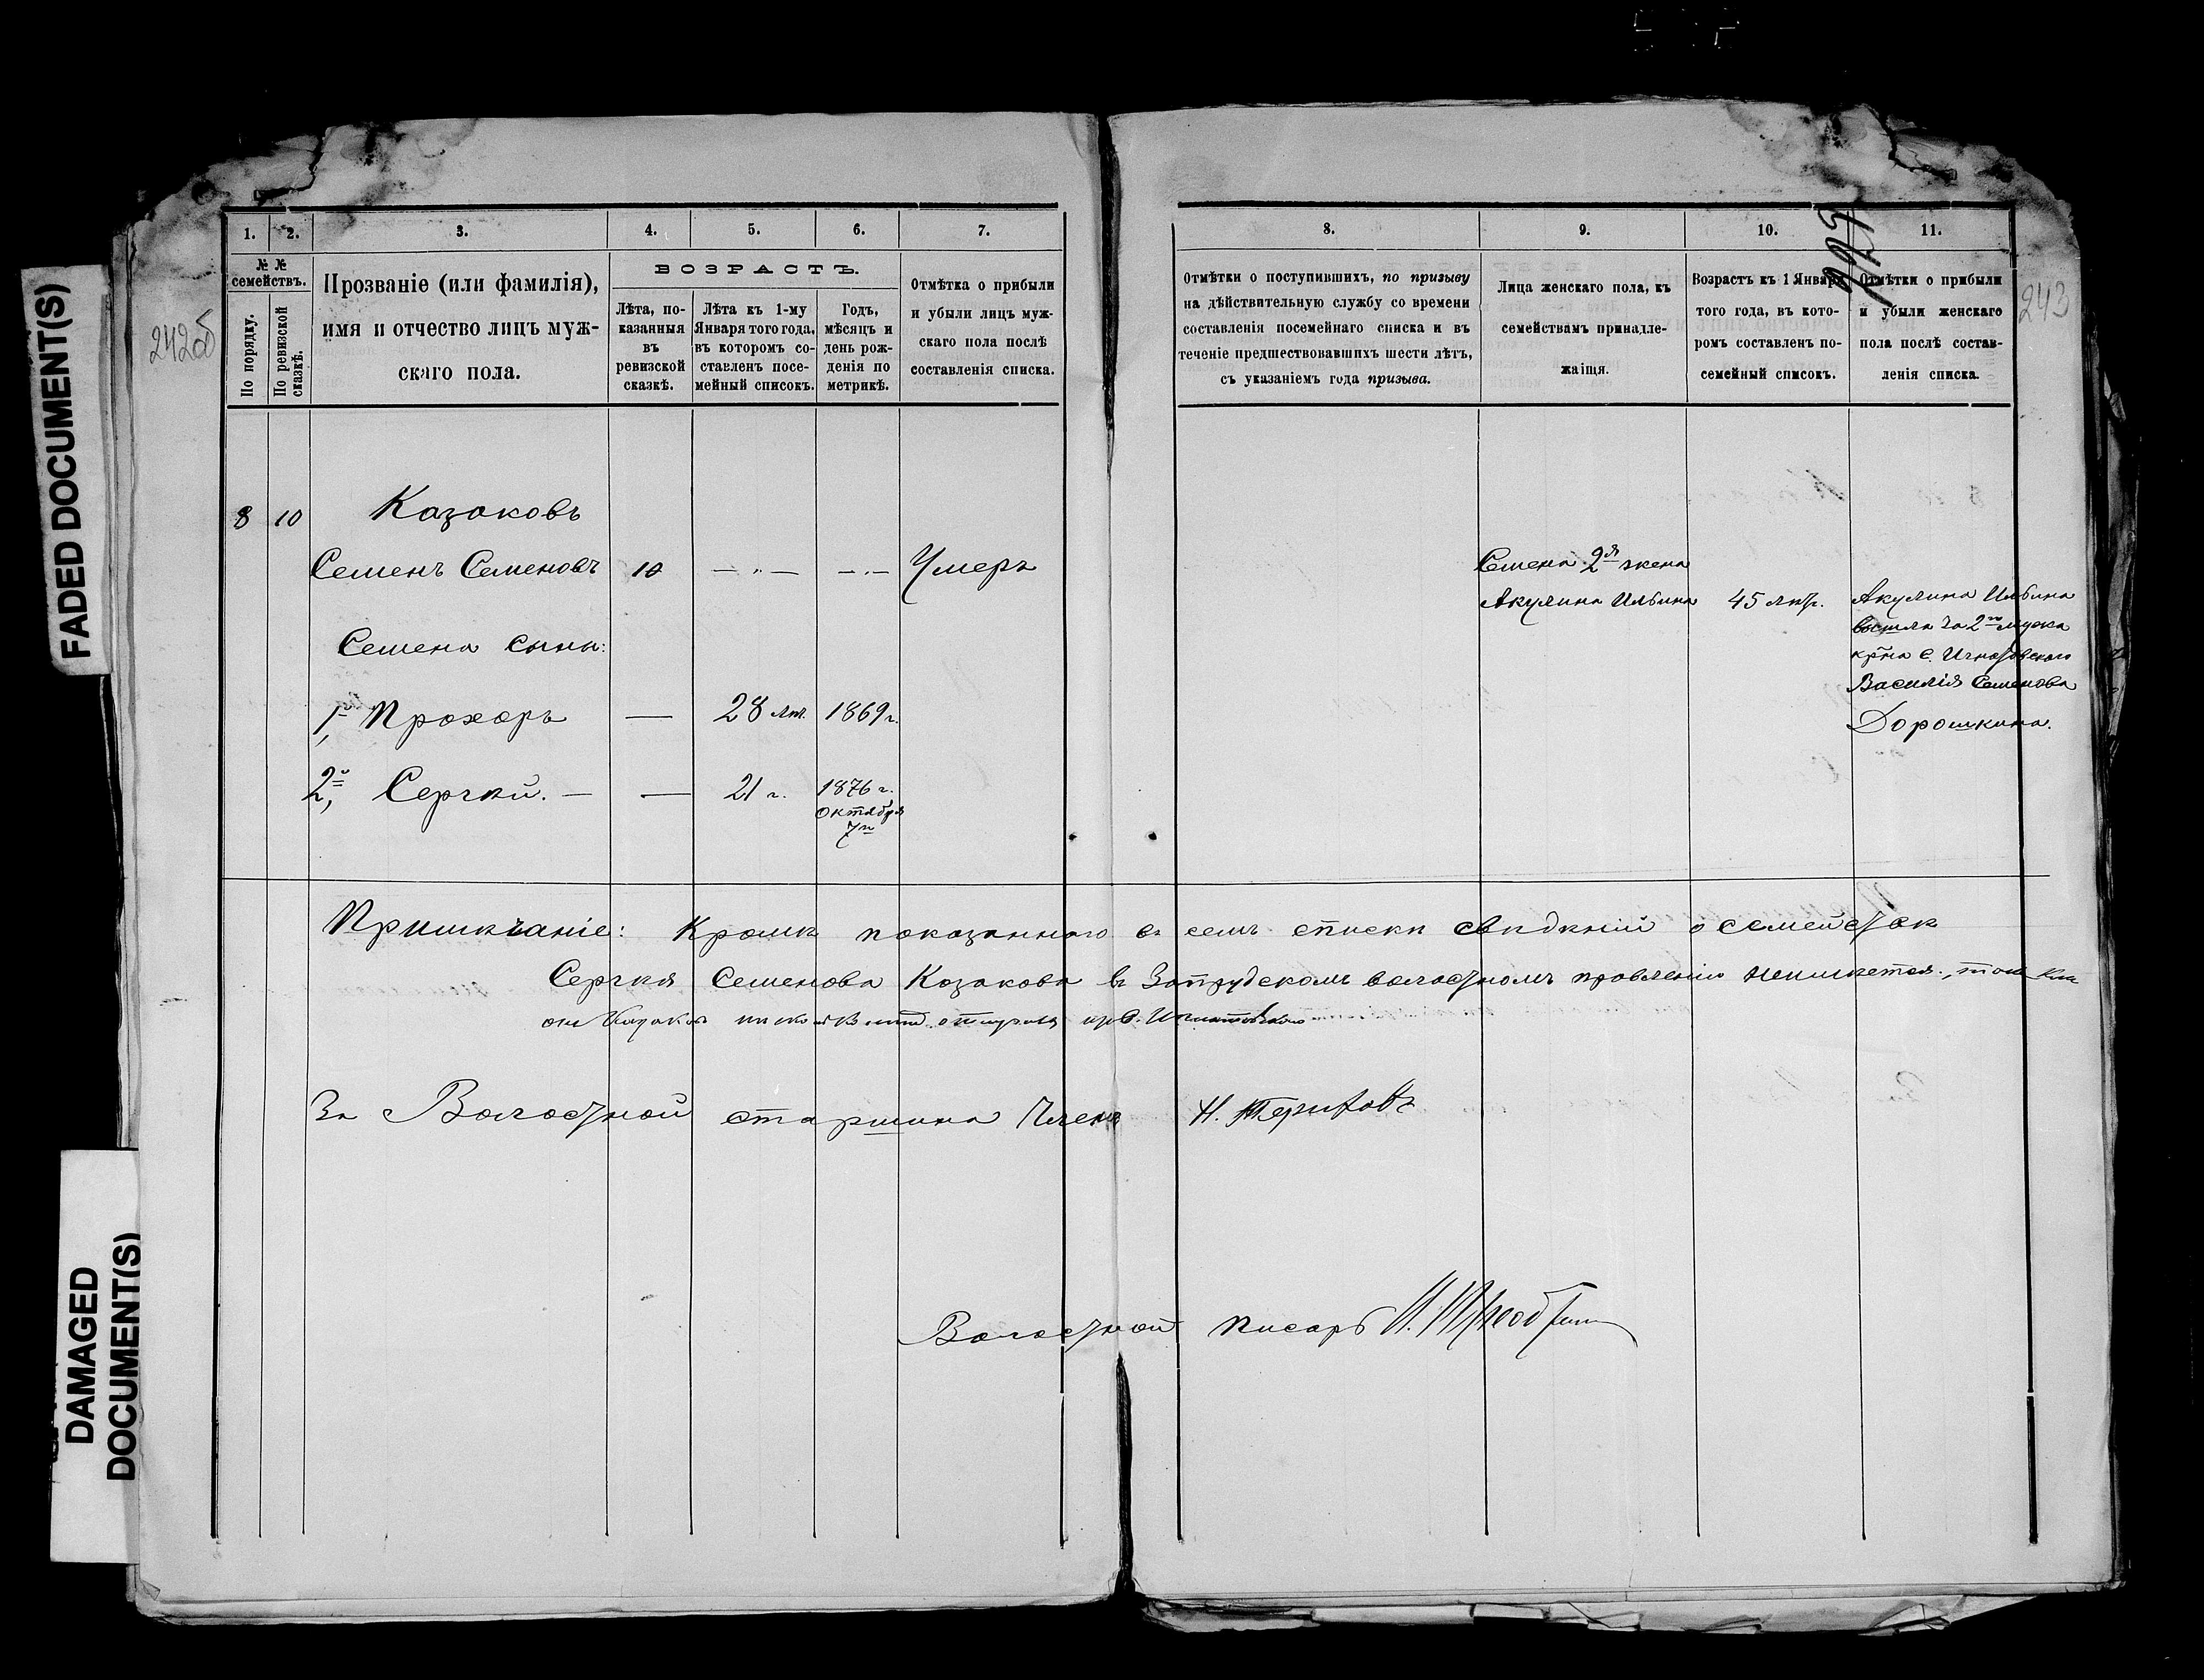 FADED DOCUMENT(S)
DAMAGED
DOCUMENT(S)
242об
1. 2. 3. 4. 5. 6. 7.
№ №
семействъ.
По порядку.
По ревизской
сказкѣ.
Прозваніе (или фамилія),
имя и отчество лицъ муж-
скаго пола.
ВОЗРАСТЪ.
Лѣта, по-
казанныя
въ
ревизской
сказкѣ.
Лѣта къ 1-му
Января того года,
въ которомъ со-
ставленъ посе-
мейный списокъ.
Годъ,
мѣсяцъ и
день рож-
денія по
метрикѣ.
Отмѣтка о прибыли
и убыли лицъ муж-
скаго пола послѣ
составленія списка.
8 10 Казаковъ
Семенъ Семеновъ 10 — „ — — „ — Умеръ
Семена сыны:
1й, Прохоръ — 28 лѣт. 1869 г.
2й, Сергѣй. — — 21 г. 1876 г.
октября
7го
8. 9. 10. 11.
243
Отмѣтки о поступившихъ, по призыву
на дѣйствительную службу со времени
составленія посемейнаго списка и въ
теченіе предшествовавшихъ шести лѣтъ,
съ указаніемъ года призыва.
Лица женскаго пола, къ
семействамъ принадле-
жащія.
Возрастъ къ 1 Января
того года, въ кото-
ромъ составленъ по-
семейный списокъ.
Отмѣтки о прибыли
и убыли женскаго
пола послѣ состав-
ленія списка.
Семена 2я жена
Акулина Ильина 45 лѣтъ.
Акулина Ильина
вышла за 2го мужа
кр-на с. Игнатовскаго
Василія Семенова
Дорошкина.
Примѣчаніе: Кромѣ показаннаго въ семъ спискѣ свѣдѣній о семействѣ
Сергѣя Семенова Казакова въ Запрудскомъ волостномъ правленіи неимѣется.,
За Волостной старшина Членъ Н.
Волостной писарь